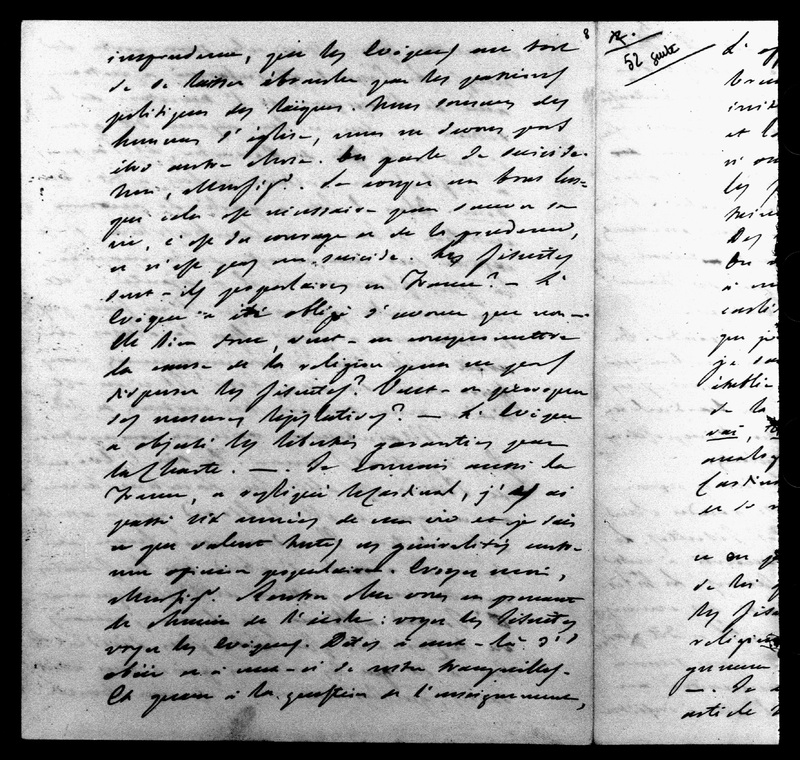 imprudence, que les Evêques ont tort
de se laisser ébranler par les passions
politiques des laïques. Nous sommes des
hommes d'église, nous ne devons pas
être autre chose. On parle de suicide.
Non, Monsigr. Se couper un bras lors-
que cela est nécessaire pour sauver sa
vie, c'est du courage et de la prudence,
ce n'est pas un suicide. Les Jésuites
sont-ils populaires en France? — L'
Evêque a été obligé d'avouer que non. —
Eh bien donc, veut-on compromettre
la cause de la religion pour ne pas
disperser les Jésuites? Veut-on provoquer
des mesures législatives? — L'Evêque
a objecté les libertés garanties par
la Charte. — Je connais aussi la
France, a répliqué le Cardinal, j'y ai
passé six années de ma vie et je sais
ce que valent toutes ces généralités contre
une opinion populaire. Croyez moi,
Monsigr. Rentrez chez vous en prenant
le chemin de l'école: voyez les Jésuites
voyez les Evêques. Dites à ceux-là d'
obéir et à ceux-ci de rester tranquilles.
Et quant à la question de l'enseignement,
8
52 suite
L'
et
les
Des
On
que
je
de la
vai,
Cardin
et de
de
les Jés
religieu
— . Je
article